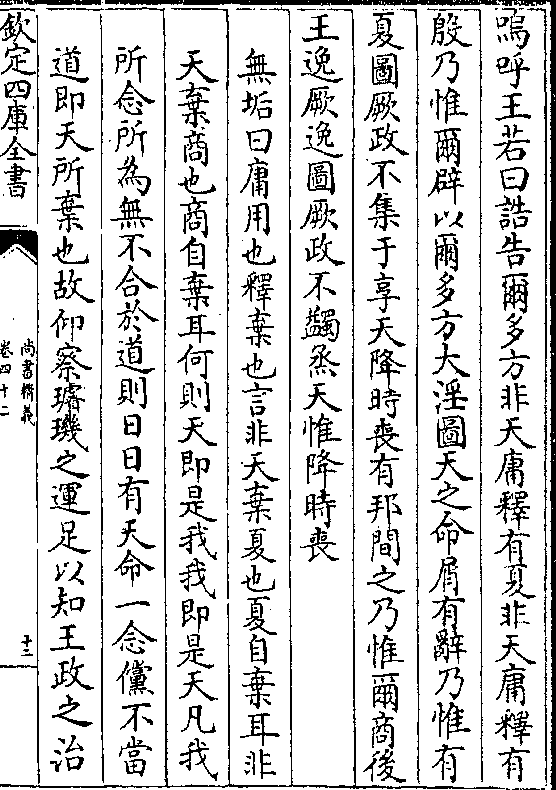 嗚呼王若曰誥告爾多方非天庸釋有夏非天庸釋有
殷乃惟爾辟以爾多方大淫圖天之命屑有辭乃惟有
夏圖厥政不集于享天降時喪有邦間之乃惟爾商後
王逸厥逸圖厥政不蠲烝天惟降時喪
無垢曰庸用也釋棄也言非天棄夏也夏自棄耳非
天棄商也商自棄耳何則天即是我我即是天凡我
所念所為無不合於道則日日有天命一念儻不當
道即天所棄也故仰察璿璣之運足以知王政之治
欽定四庫全書
尚書精義
卷四十二
十三